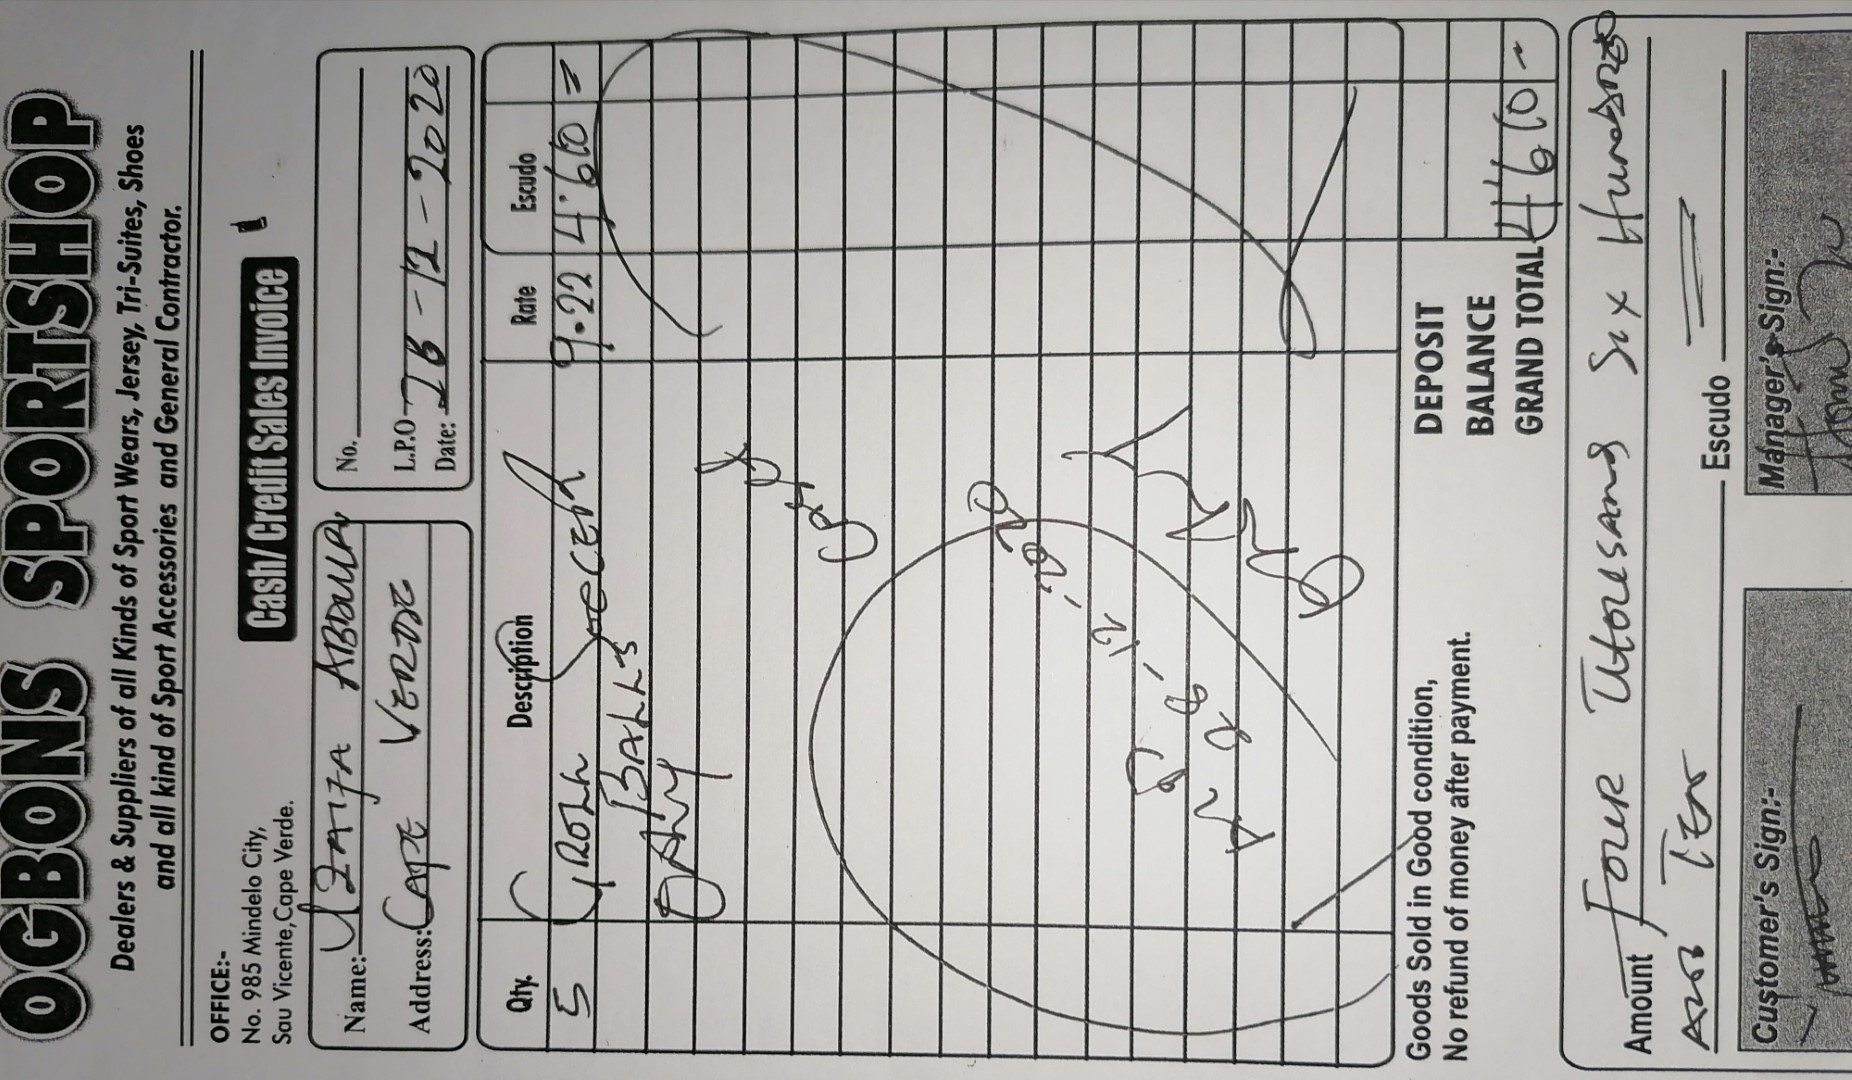 OGBONS SPORTSHOP
Dealers & Suppliers of all Kinds of Sport Wears, Jersey, Tri-Suites, Shoes
and all kind of Sport Accessories and General Contractor.
OFFICE:-
No. 985 Mindelo City,
Sau Vicente,Cape Verde.
Cash/ Credit Sales Invoice
Name: ABDULA
Address: CAPE VERDE
No.
L.P.O
Date: -12-2020
Qty. Description Rate Escudo
5 9.22 4'610 =
BALLS
ONLY
-12-2020
Goods Sold in Good condition,
No refund of money after payment.
DEPOSIT
BALANCE
GRAND TOTAL 4610 -
Amount FOUR THOUSAND SIX HUNDRED
AND TEN Escudo
Customer's Sign:-
Manager's Sign:-